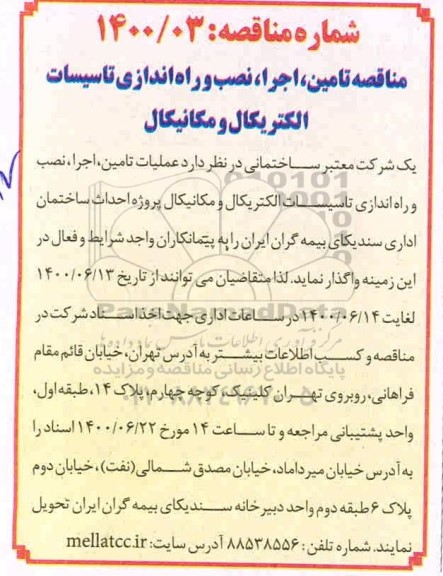 شماره مناقصه: ۱۴۰۰/۰۳
مناقصه تامین، اجرا، نصب و راه اندازی تاسیسات
الکتریکال و مکانیکال
یک شرکت معتبر ساختمانی در نظر دارد عملیات تامین، اجرا، نصب
و راه اندازی تاسیسات الکتریکال و مکانیکال پروژه احداث ساختمان
اداری سندیکای بیمه گران ایران را به پیمانکاران واجد شرایط و فعال در
این زمینه واگذار نماید. لذا متقاضیان می توانند از تاریخ ۱۴۰۰/۰۶/۱۳
لغایت ۱۴۰۰/۰۶/۱۴ در ساعات اداری جهت اخذ اسناد شرکت در
مناقصه و کسب اطلاعات بیشتر به آدرس تهران، خیابان قائم مقام
فراهانی، روبروی تهران کلینیک، کوچه چهارم، پلاک ۱۴، طبقه اول،
واحد پشتیبانی مراجعه و تا ساعت ۱۴ مورخ ۱۴۰۰/۰۶/۲۲ اسناد را
به آدرس خیابان میرداماد، خیابان مصدق شمالی (نفت)، خیابان دوم
پلاک ۶ طبقه دوم واحد دبیرخانه سندیکای بیمه گران ایران تحویل
نمایند. شماره تلفن: ۸۸۵۳۸۵۵۶ آدرس سایت: mellatcc.ir
ParsNamadData
پایگاه اطلاع رسانی مناقصه و مزایده